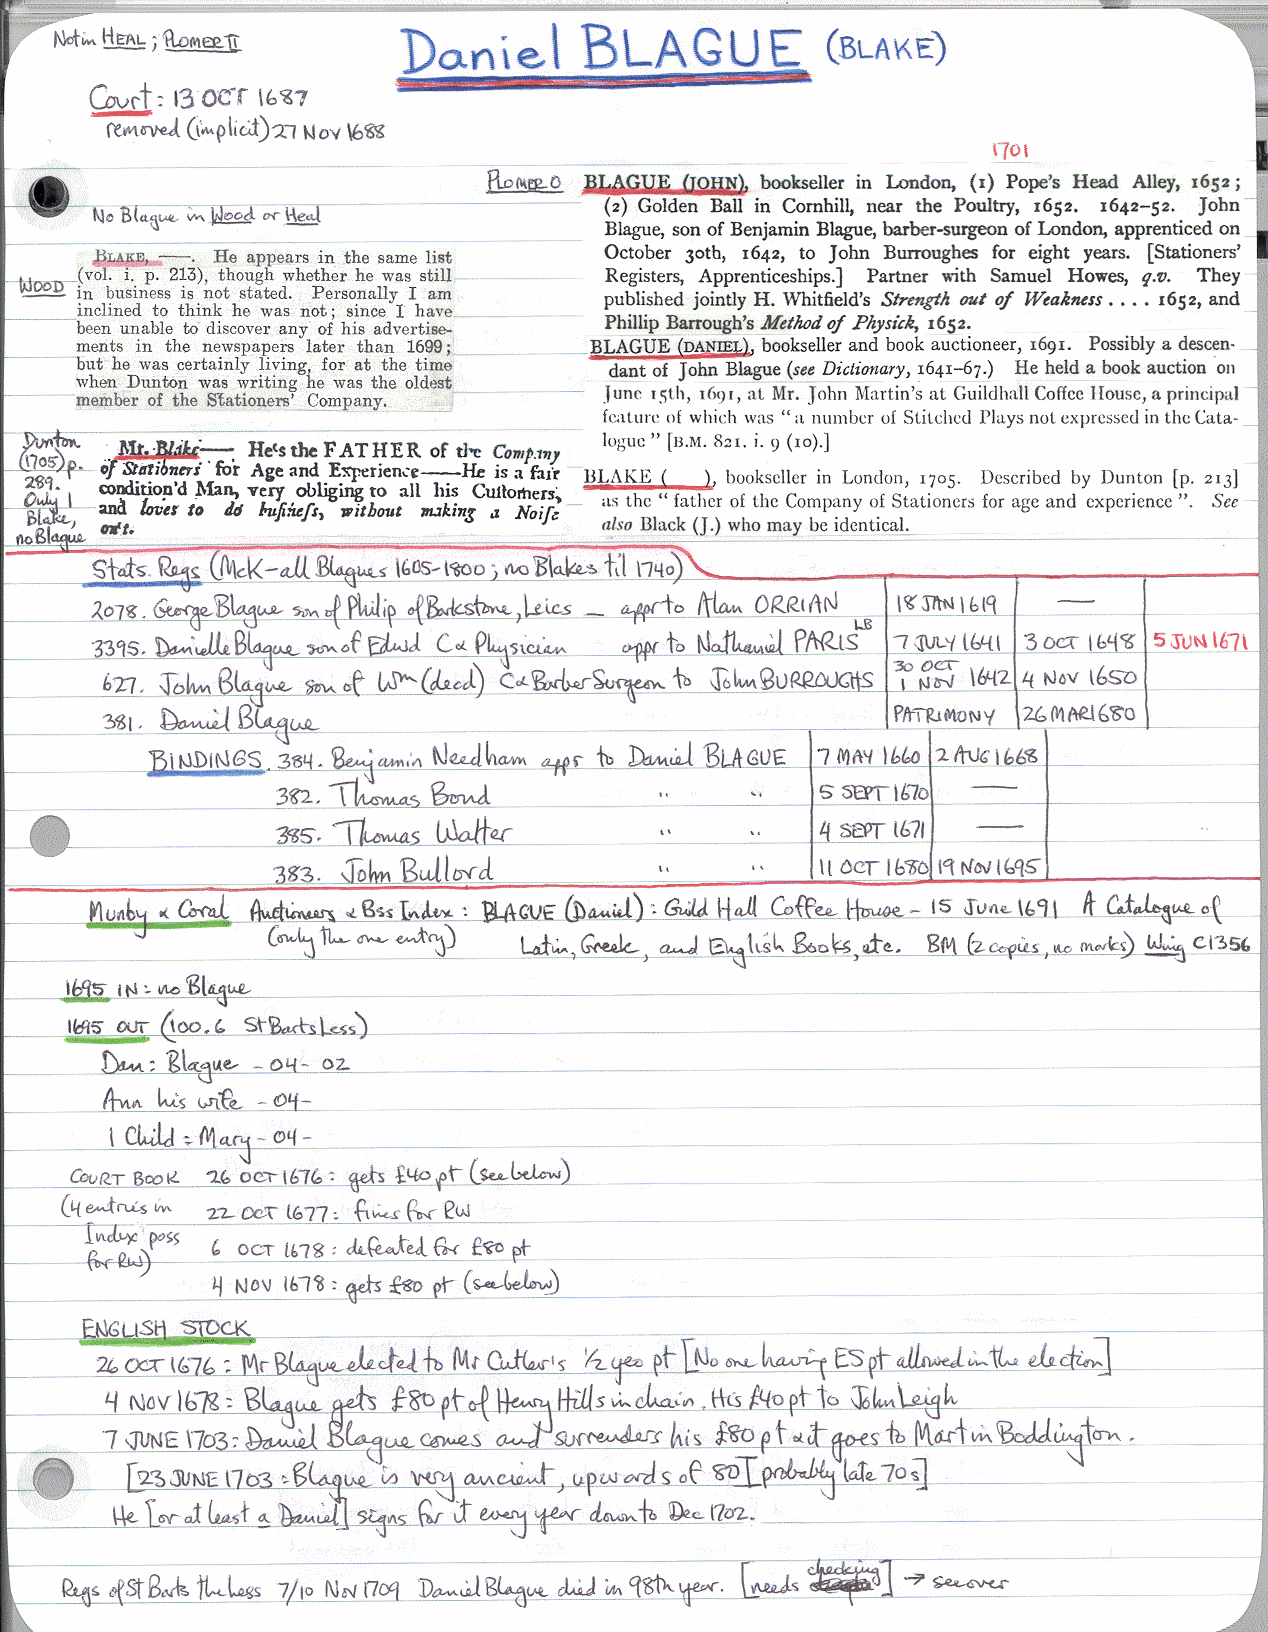 Not in HEAL; PLOMER II
Daniel BLAGUE (BLAKE)
Court: 13 OCT 1687
removed (implicit) 27 NOV 1688
1701
No Blague in Wood or Heal
WOOD
BLAKE, —. He appears in the same list
(vol. i. p. 213), though whether he was still
in business is not stated. Personally I am
inclined to think he was not; since I have
been unable to discover any of his advertise-
ments in the newspapers later than 1699;
but he was certainly living, for at the time
when Dunton was writing he was the oldest
member of the Stationers' Company.
PLOMER O
BLAGUE (JOHN), bookseller in London, (1) Pope's Head Alley, 1652;
(2) Golden Ball in Cornhill, near the Poultry, 1652. 1642–52. John
Blague, son of Benjamin Blague, barber-surgeon of London, apprenticed on
October 30th, 1642, to John Burroughes for eight years. [Stationers'
Registers, Apprenticeships.] Partner with Samuel Howes, q.v. They
published jointly H. Whitfield's Strength out of Weakness . . . . 1652, and
Phillip Barrough's Method of Physick, 1652.
BLAGUE (DANIEL), bookseller and book auctioneer, 1691. Possibly a descen-
dant of John Blague (see Dictionary, 1641–67.) He held a book auction on
June 15th, 1691, at Mr. John Martin's at Guildhall Coffee House, a principal
feature of which was "a number of Stitched Plays not expressed in the Cata-
logue" [B.M. 821. i. 9 (10).]
BLAKE ( ), bookseller in London, 1705. Described by Dunton [p. 213]
as the "father of the Company of Stationers for age and experience". See
also Black (J.) who may be identical.
Dunton
(1705) p.
289.
Only 1
Blake,
no Blague
Mr. Blake— He's the FATHER of the Company
of Stationers for Age and Experience—He is a fair
condition'd Man, very obliging to all his Customers,
and loves to do business, without making a Noise
on't.
Stats. Regs (McK – all Blagues 1605-1800; no Blakes til 1740)
2078. George Blague son of Philip of Barkstone, Leics — appr to Alan ORRIAN 18 JAN 1619 —
3395. Danielle Blague son of Edwd C α Physician appr to Nathaniel PARIS LB 7 JULY 1641 3 OCT 1648 5 JUN 1671
627. John Blague son of Wm (decd) C α Barber Surgeon to John BURROUGHS 30 OCT 1 NOV 1642 4 NOV 1650
381. Daniel Blague PATRIMONY 26 MAR 1680
BINDINGS. 384. Benjamin Needham appr to Daniel BLAGUE 7 MAY 1660 2 AUG 1668
382. Thomas Bond " " 5 SEPT 1670 —
385. Thomas Walter " " 4 SEPT 1671 —
383. John Bullord " " 11 OCT 1680 19 NOV 1695
Munby α Coral Auctioneers α Bss Index: BLAGUE (Daniel): Guild Hall Coffee House – 15 June 1691 A Catalogue of
(only the one entry) Latin, Greek, and English Books, etc. BM (2 copies, no marks) Wing C1356
1695 IN: no Blague
1695 OUT (100.6 St Barts Less)
Dan: Blague - 04 - 02
Ann his wife - 04 -
1 Child: Mary - 04 -
COURT BOOK 26 OCT 1676: gets £40 pt (see below)
(4 entries in 22 OCT 1677: fines for RW
Index poss 6 OCT 1678: defeated for £80 pt
for RW) 4 NOV 1678: gets £80 pt (see below)
ENGLISH STOCK
26 OCT 1676: Mr Blague elected to Mr Cutler's ½ yeo pt [No one having ES pt allowed in the election]
4 NOV 1678: Blague gets £80 pt of Henry Hills in chain. His £40 pt to John Leigh
7 JUNE 1703: Daniel Blague comes and surrenders his £80 pt α it goes to Martin Boddington.
[23 JUNE 1703: Blague is very ancient, upwards of 80] [probably late 70s]
He [or at least a Daniel] signs for it every year down to Dec 1702.
Regs of St Barts the Less 7/10 NOV 1709 Daniel Blague died in 98th year. [needs checking] → see over